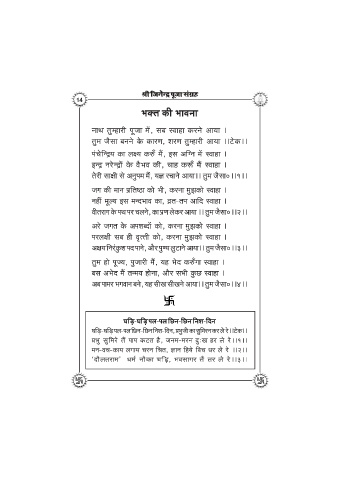 श्री जिनेन्द्र पूजा संग्रह
14
भक्त की भावना
नाथ तुम्हारी पूजा में, सब स्वाहा करने आया ।
तुम जैसा बनने के कारण, शरण तुम्हारी आया ।।टेक।।
पंचेन्द्रिय का लक्ष्य करूँ मैं, इस अग्नि में स्वाहा ।
इन्द्र नरेन्द्रों के वैभव की, चाह करूँ मैं स्वाहा ।
तेरी साक्षी से अनुपम मैं, यज्ञ रचाने आया।। तुम जैसा०।।१।।
जग की मान प्रतिष्ठा को भी, करना मुझको स्वाहा ।
नहीं मूल्य इस मन्दभाव का, व्रत-तप आदि स्वाहा ।
वीतराग के पथ पर चलने, का प्रण लेकर आया ।। तुम जैसा०।।२।।
अरे जगत के अपशब्दों को, करना मुझको स्वाहा ।
परलक्षी सब ही वृत्ती को, करना मुझको स्वाहा ।
अक्षय निरंकुश पद पाने, और पुण्य लुटाने आया।। तुम जैसा०।।३।।
तुम हो पूज्य, पुजारी मैं, यह भेद करूँगा स्वाहा ।
बस अभेद में तन्मय होना, और सभी कुछ स्वाहा ।
अब पामर भगवान बने, यह सीख सीखने आया।। तुम जैसा०।।४।।
घड़ि-घड़ि पल-पल छिन-छिन निश-दिन
घड़ि-घड़ि पल-पल छिन-छिन निश-दिन, प्रभुजी का सुमिरन कर ले रे ।।टेक।।
प्रभु सुमिरे तैं पाप कटत है, जनम-मरन दुःख हर ले रे।।१।।
मन-वच-काय लगाय चरन चित, ज्ञान हिये विच धर ले रे ।।२।।
'दौलतराम' धर्म नौका चढ़ि, भवसागर तैं तर ले रे।।३।।